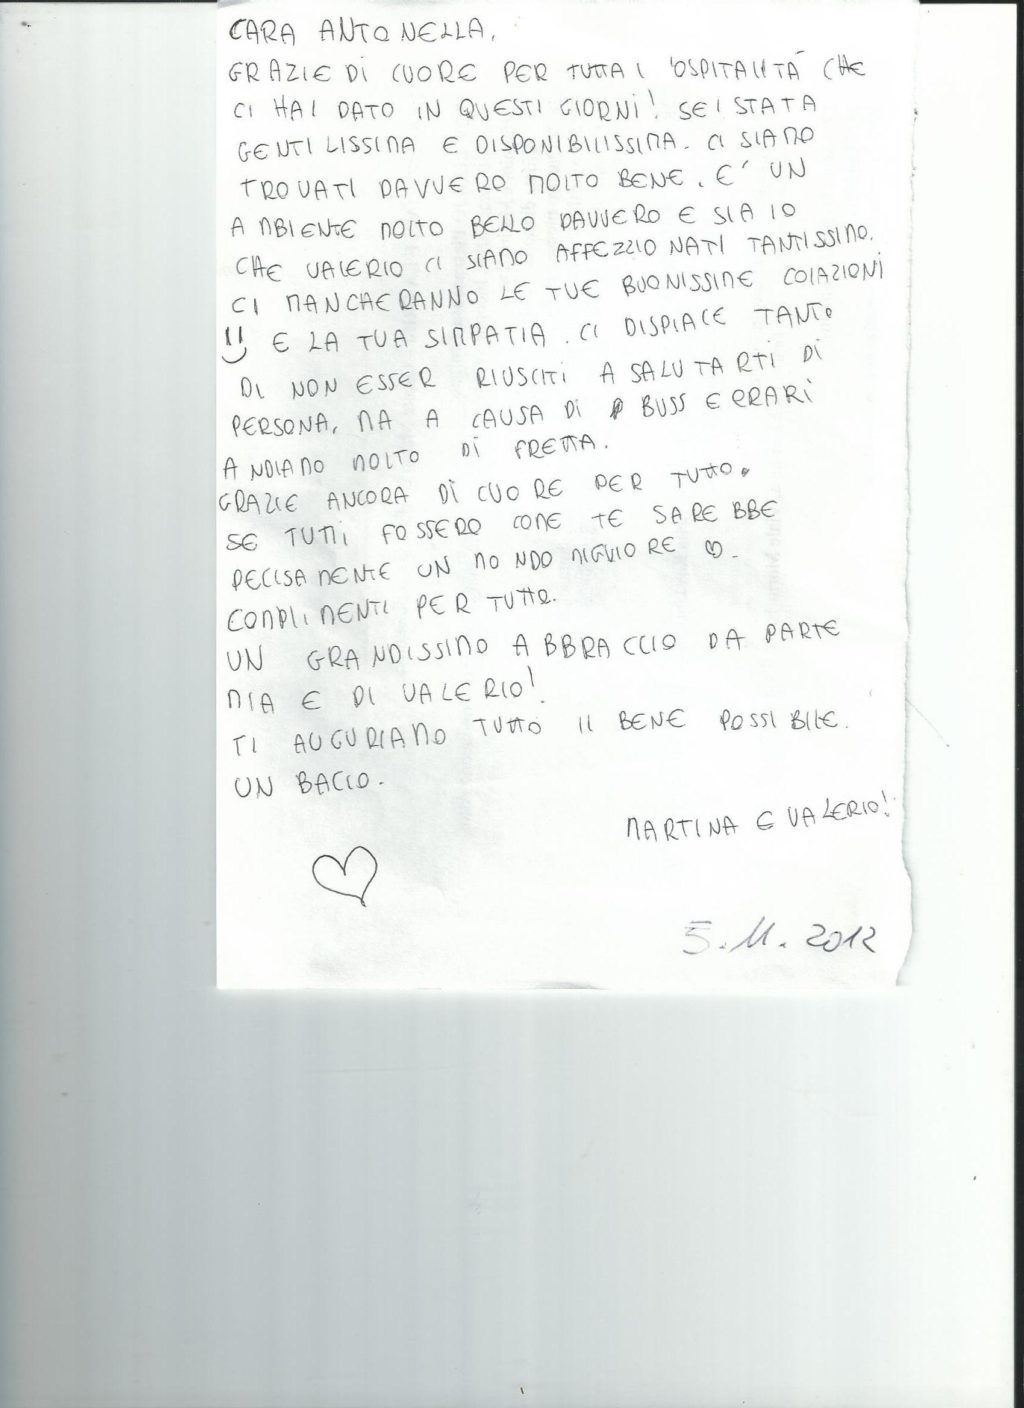 CARA ANTONELLA,
GRAZIE DI CUORE PER TUTTA L'OSPITALITÀ CHE
CI HAI DATO IN QUESTI GIORNI! SEI STATA
GENTILISSIMA E DISPONIBILISSIMA. CI SIAMO
TROVATI DAVVERO MOLTO BENE. E' UN
AMBIENTE MOLTO BELLO DAVVERO E SIA IO
CHE VALERIO CI SIAMO AFFEZZIONATI TANTISSIMO.
CI MANCHERANNO LE TUE BUONISSIME COLAZIONI
E LA TUA SIMPATIA. CI DISPIACE TANTO
DI NON ESSER RIUSCITI A SALUTARTI DI
PERSONA, MA A CAUSA DI BUSS E ORARI
ANDIAMO MOLTO DI FRETTA.
GRAZIE ANCORA DI CUORE PER TUTTO.
SE TUTTI FOSSERO COME TE SAREBBE
DECISAMENTE UN MONDO MIGLIORE ♡.
COMPLIMENTI PER TUTTO.
UN GRANDISSIMO ABBRACCIO DA PARTE
MIA E DI VALERIO!
TI AUGURIAMO TUTTO IL BENE POSSIBILE.
UN BACIO.
MARTINA E VALERIO!
5.11.2012